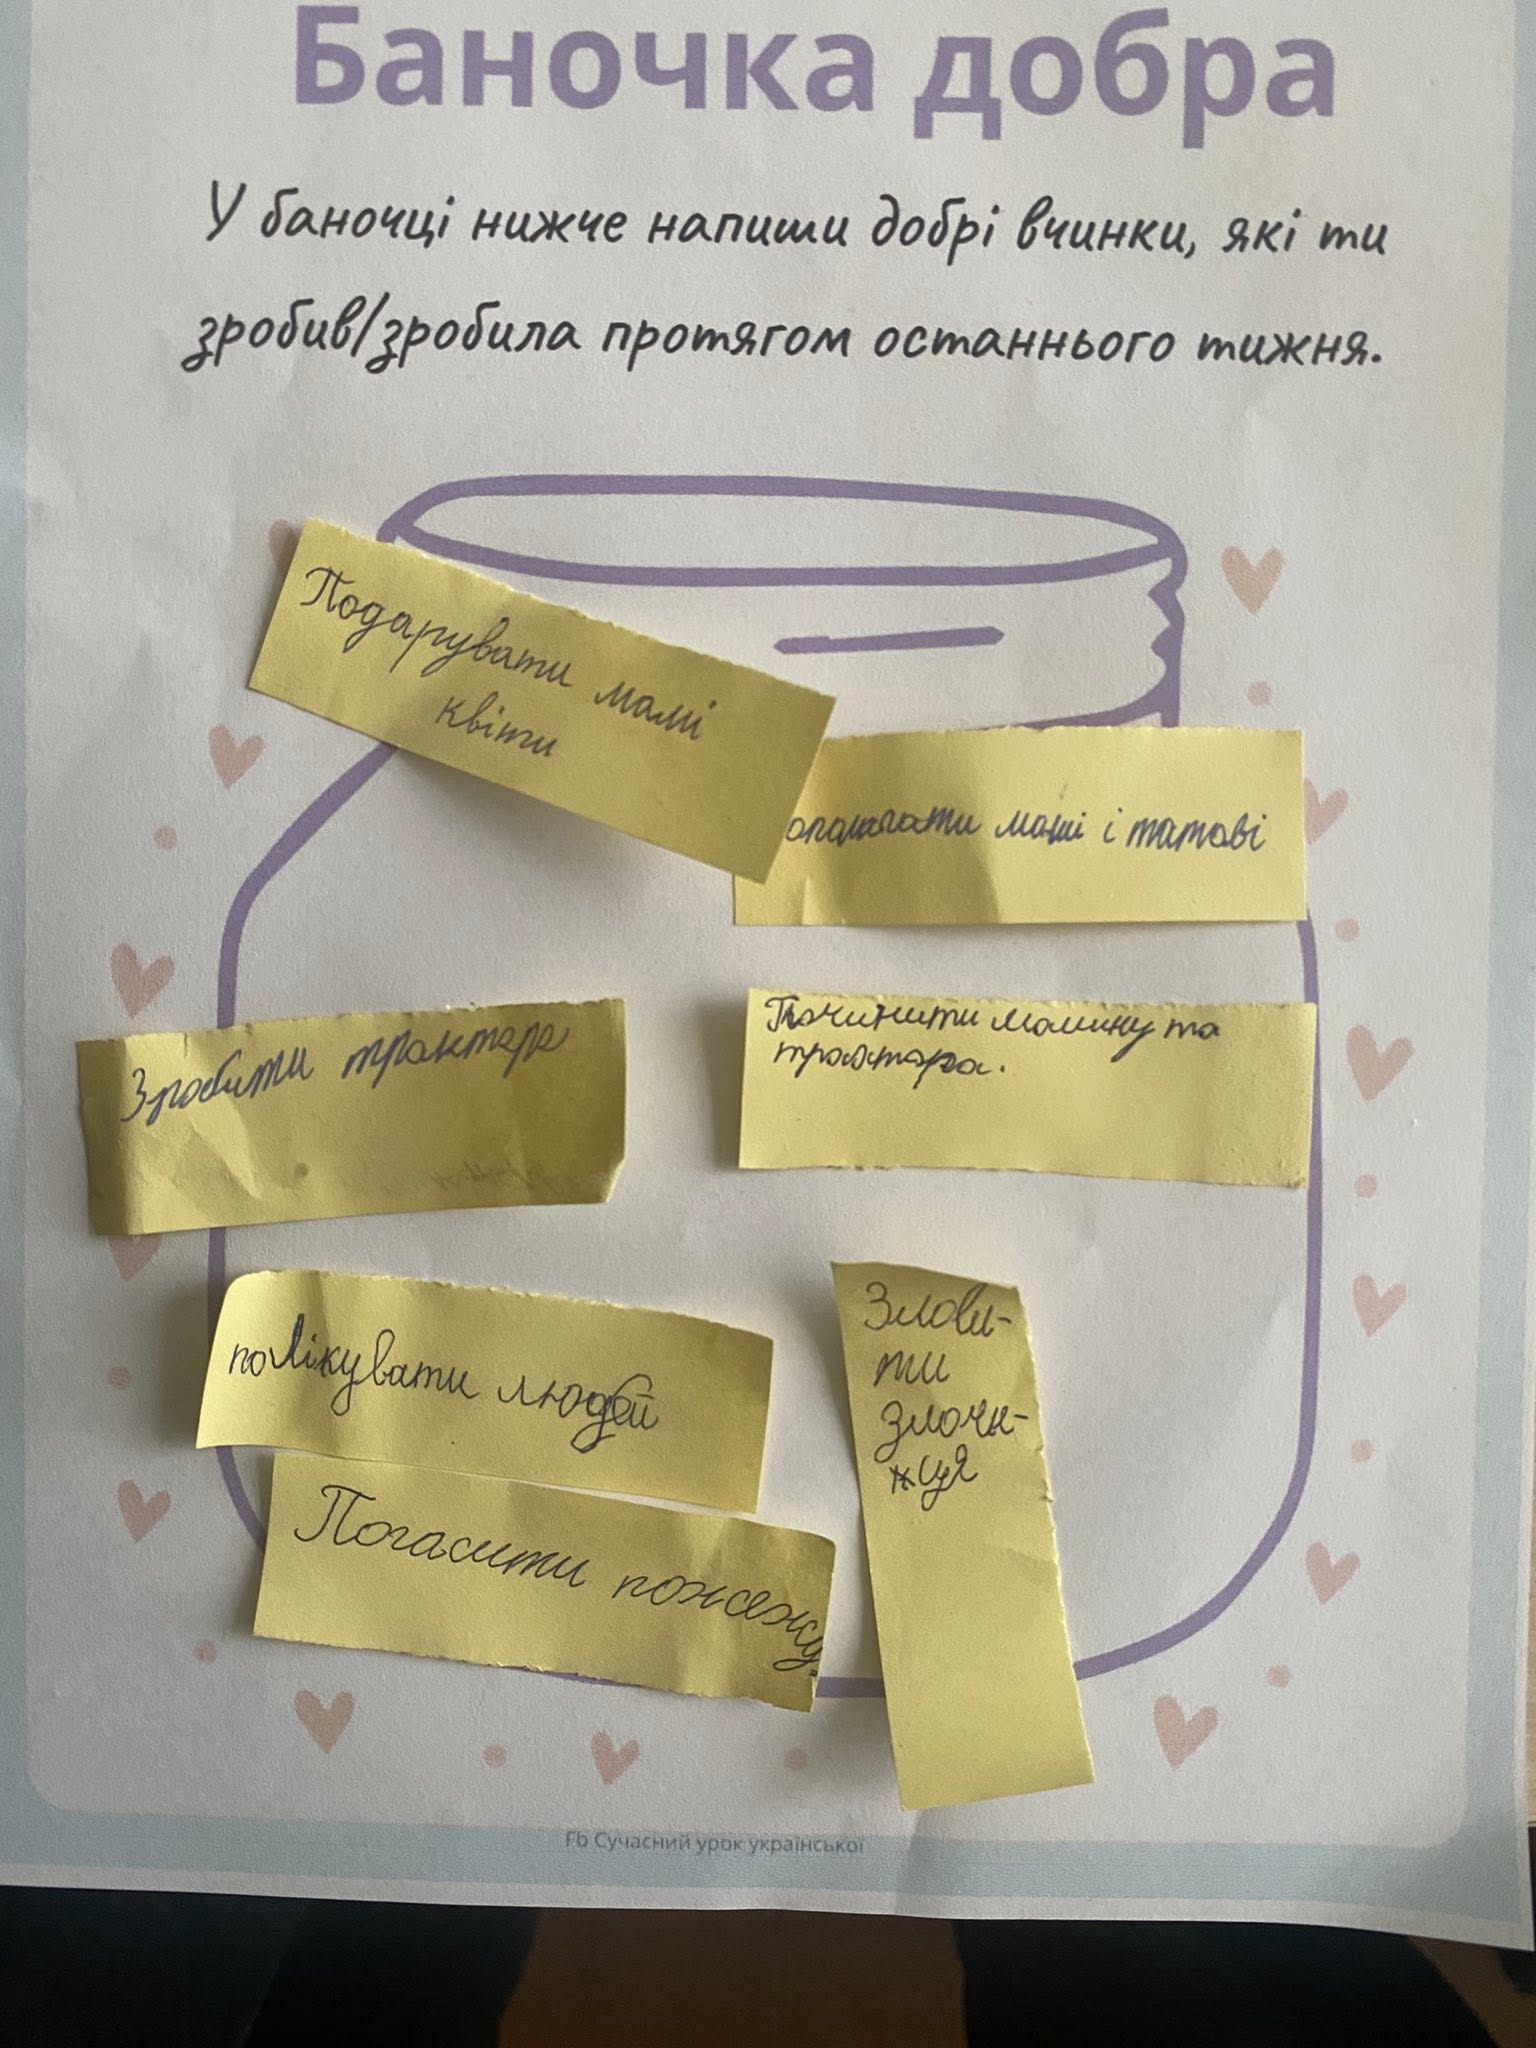 Баночка добра
У баночці нижче напиши добрі вчинки, які ти
зробив/зробила протягом останнього тижня.
Подарувати мамі
квіти
опомагати мамі і татові
Зробити трактора
Починити машину та
трактора.
полікувати людей
Злови-
ти
злочи-
нця
Погасити пожежу.
Fb Сучасний урок української